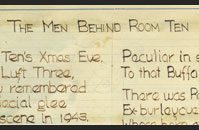 THE MEN BEHIND ROOM TEN
Ten's Xmas Eve,
Luft Three,
remembered
glee
scene in 1943.
Peculiar in
To that Buffa
There was
Ex-burlesque